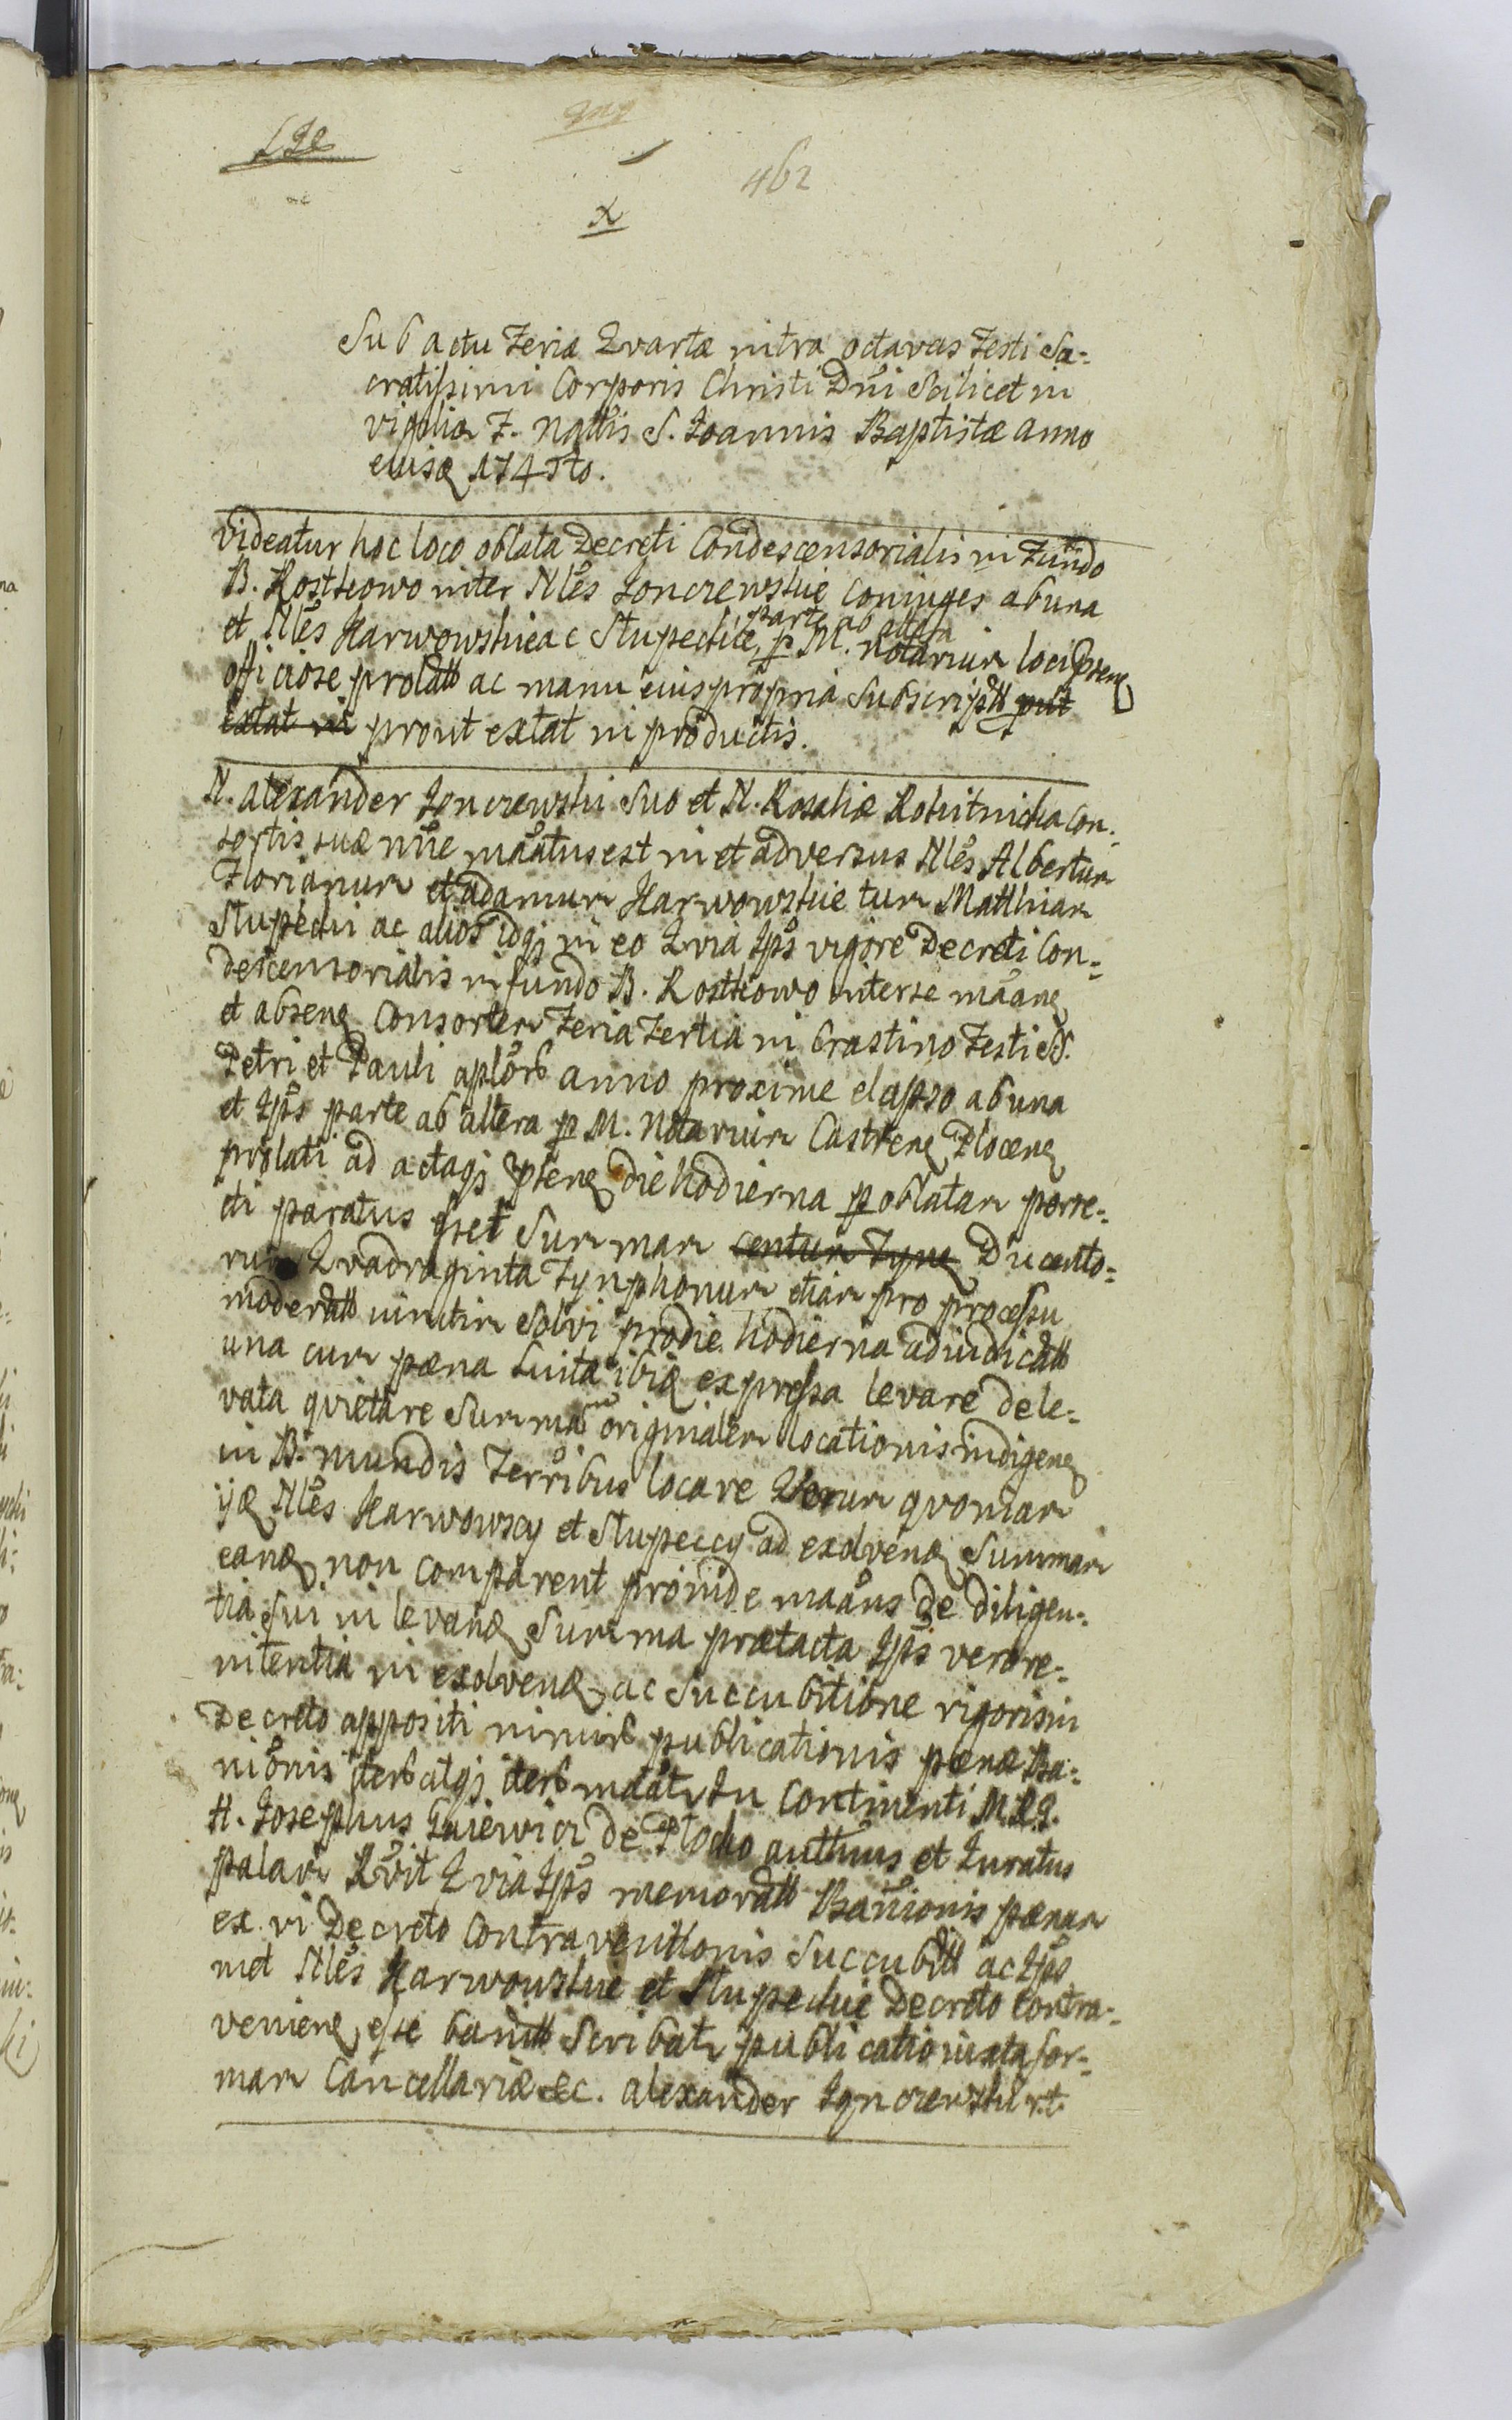 462
x
Sub actu Feria Qvarta intra octavas Festi Sa-
cratissimi Corporis Christi Dni Scilicet in
vigilia F. Nattis S. Joannis Baptistæ anno
eiusq 174
videatur hoc loco oblata Decreti Condescensorialis in Fundo
B. Rostkowo inter Nles Joncrewskie Coniuges ab una
parte ab altera
et Nles Karwowskie ac Stupeckie, p M. Notarium loci
officiose prolatt ac manu eius propria subscriptt put
extat in prout extat in productis.
N. Alexander Joncrewski suo et N. Rosaliæ Rokitnicka Con-
sortis suæ nne maatus est in et adversus Nles Albertum
Florianum et Adamum Karwowskie tum Matthiam
Stupecki ac alios idqj in eo Qvia Ips vigore Decreti Con-
descensorialis in fundo B. Rostkowo inter se maang
et abseng Consortem Feria Tertia in Crastino Festi SS.
Petri et Pauli aplorb anno proxime elapso ab una
et Ips parte ab altera p M. Notarium Castreng Ploceng
prolati ad actaqj pseng die hodierna p oblatam porre-
cti paratus esset Summam centum Tynq Ducento-
rum Qvadraginta Tynphonum etiam pro processu
moderatt inventim solvi pro die hodierna adiudicatt
una cum pæna luita ibiq expressa levare de le-
vata qvietare Summam originalem locationis indigeng
in B. mundis Terribus locare Verum qvoniam
ijq Nles Karwowscy et Stupeccy ad exolvenq Summam
eanq non comparent proinde maans de diligen-
tia sui in levanq Summa prætacta Ips vero re-
nitentia in exolvenq ac succubitione rigoris in
Decreto appositi nimirb publicationis pænæ Ba-
nionis iterb atqj iterb maatr In Continenti M.R.J.
H. Josephus Guiewicz de Plocko autthnus et Juratus
palam Rvit Qvia Ips memoratt Banionis pænam
ex vi Decreto Contraventionis succubitt ac Ips
met Nles Karwowskie et Stupeckie Decreto contra-
venieng esse banitt Scribatr publicatio iuxta for-
mam Cancellariæ &c. Alexander Joncrewski r.t.